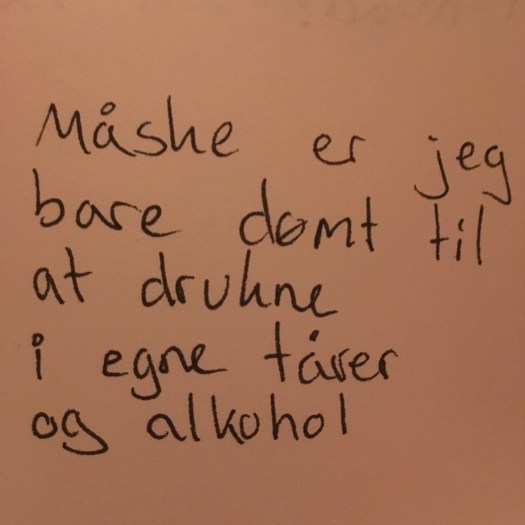 Måske er jeg
bare dømt til
at drukne
i egne tårer
og alkohol